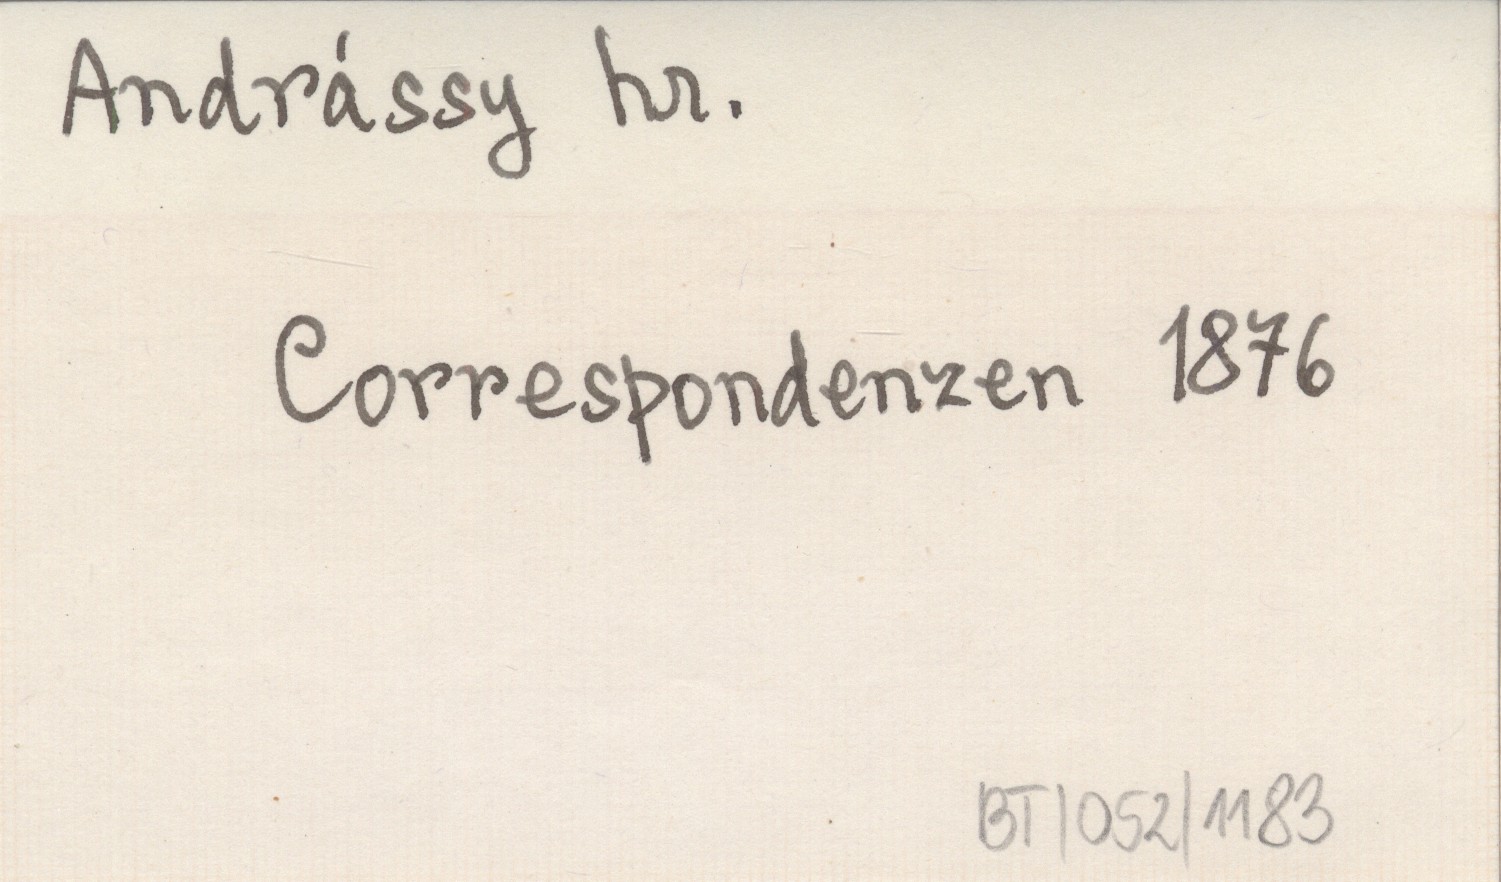 Andrássy hr.
Correspondenzen 1876
BT/052/1183